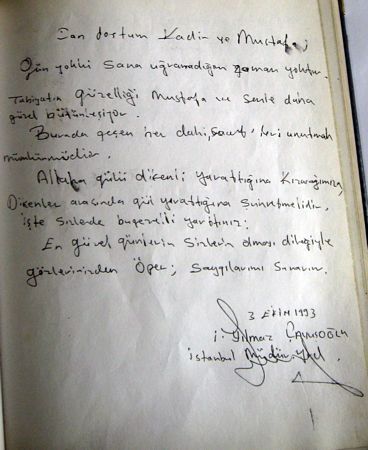 Can dostum Kadir ve Mustafa;
Gün yokki sana uğramadığım zaman yoktur.
Tabiyatın güzelliği Mustafa ve senle daha
güzel bütünleşiyor.
Burada geçen her daki, saat'leri unutmak
mümkünmüdür.
Allahın gülü dikenli yarattığına kızacağımıza,
Dikenler arasında gül yarattığına şükretmelidir.
İşte sizlerde bu güzelliği yarattınız.
En güzel günlerin sizlerin olması dileğiyle
gözlerinizden Öper; saygılarımı sunarım.
3 EKİM 1993
İ. Yılmaz ÇAVUŞOĞLU
İstanbul Müdür